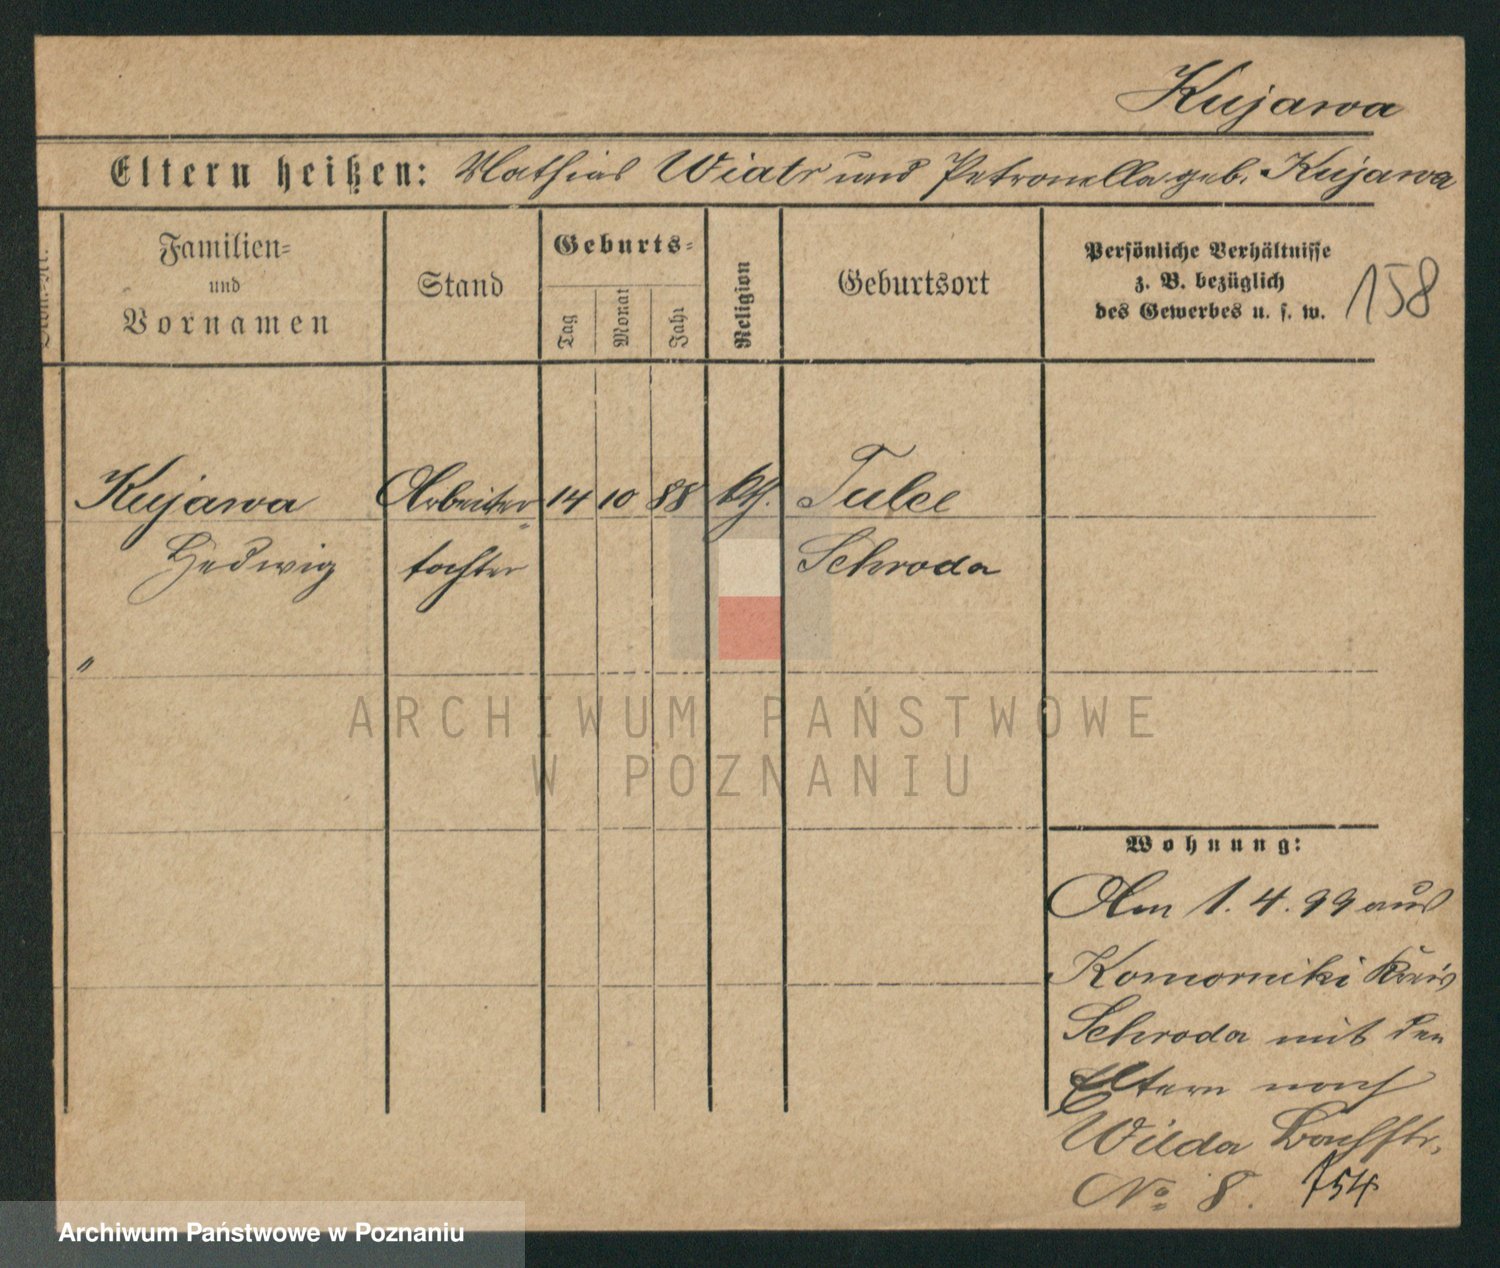 Kujawa
Eltern heißen: Mathias Wiatr und Petronella geb. Kujawa
Familien=
und
Vornamen
Stand
Geburts=
Tag
Monat
Jahr
Religion
Geburtsort
Persönliche Verhältnisse
z. B. bezüglich
des Gewerbes u. s. w.
158
Kujawa Arbeiter 14 10 88 kth. Tulce
Hedwig tochter Schroda
"
ARCHIWUM PAŃSTWOWE
W POZNANIU
Wohnung:
Am 1. 4. 99 aus
Komorniki Kreis
Schroda mit den
Eltern nach
Wilda Bachstr.
No 8. 754
Archiwum Państwowe w Poznaniu